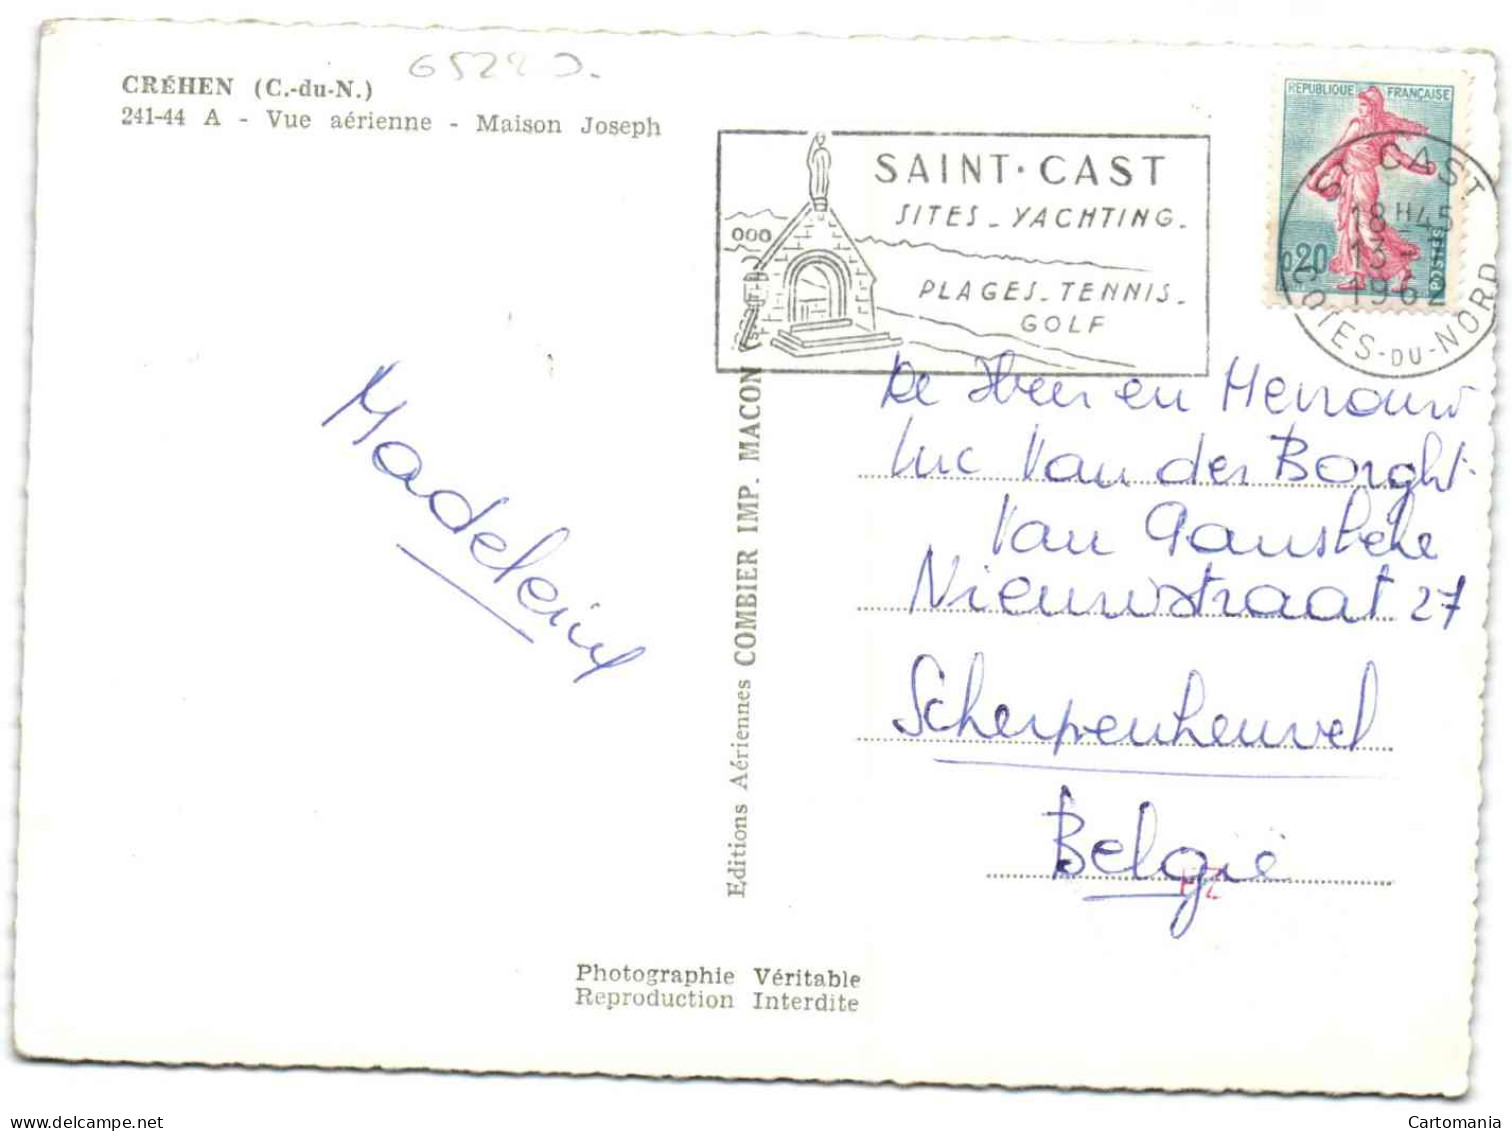 65220.
CRÉHEN (C.-du-N.)
241-44 A - Vue aérienne - Maison Joseph
SAINT·CAST
SITES_YACHTING_
PLAGES_TENNIS_
GOLF
REPUBLIQUE FRANÇAISE
0,20
POSTES
ST CAST
18H45
13-
1962
COTES-DU-NORD
Madeleine
Editions Aériennes COMBIER IMP. MACON
De Heer en Mevrouw
Luc Van der Borght
Van
Nieuwstraat 27
Scherpenheuvel
België
Photographie Véritable
Reproduction Interdite
Cartomania